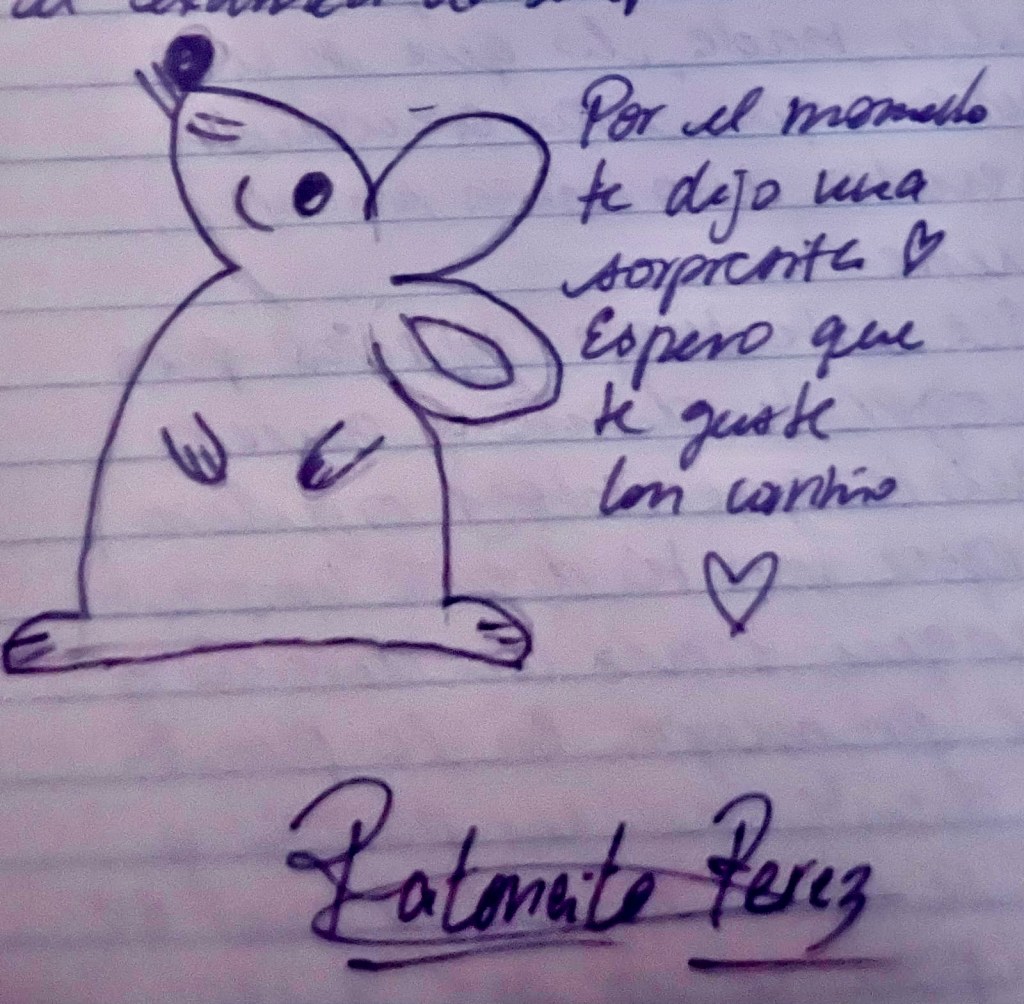 Por el momento
te dejo una
sorpresita ♡
Espero que
te guste
Con cariño
♡
Ratoncito Perez